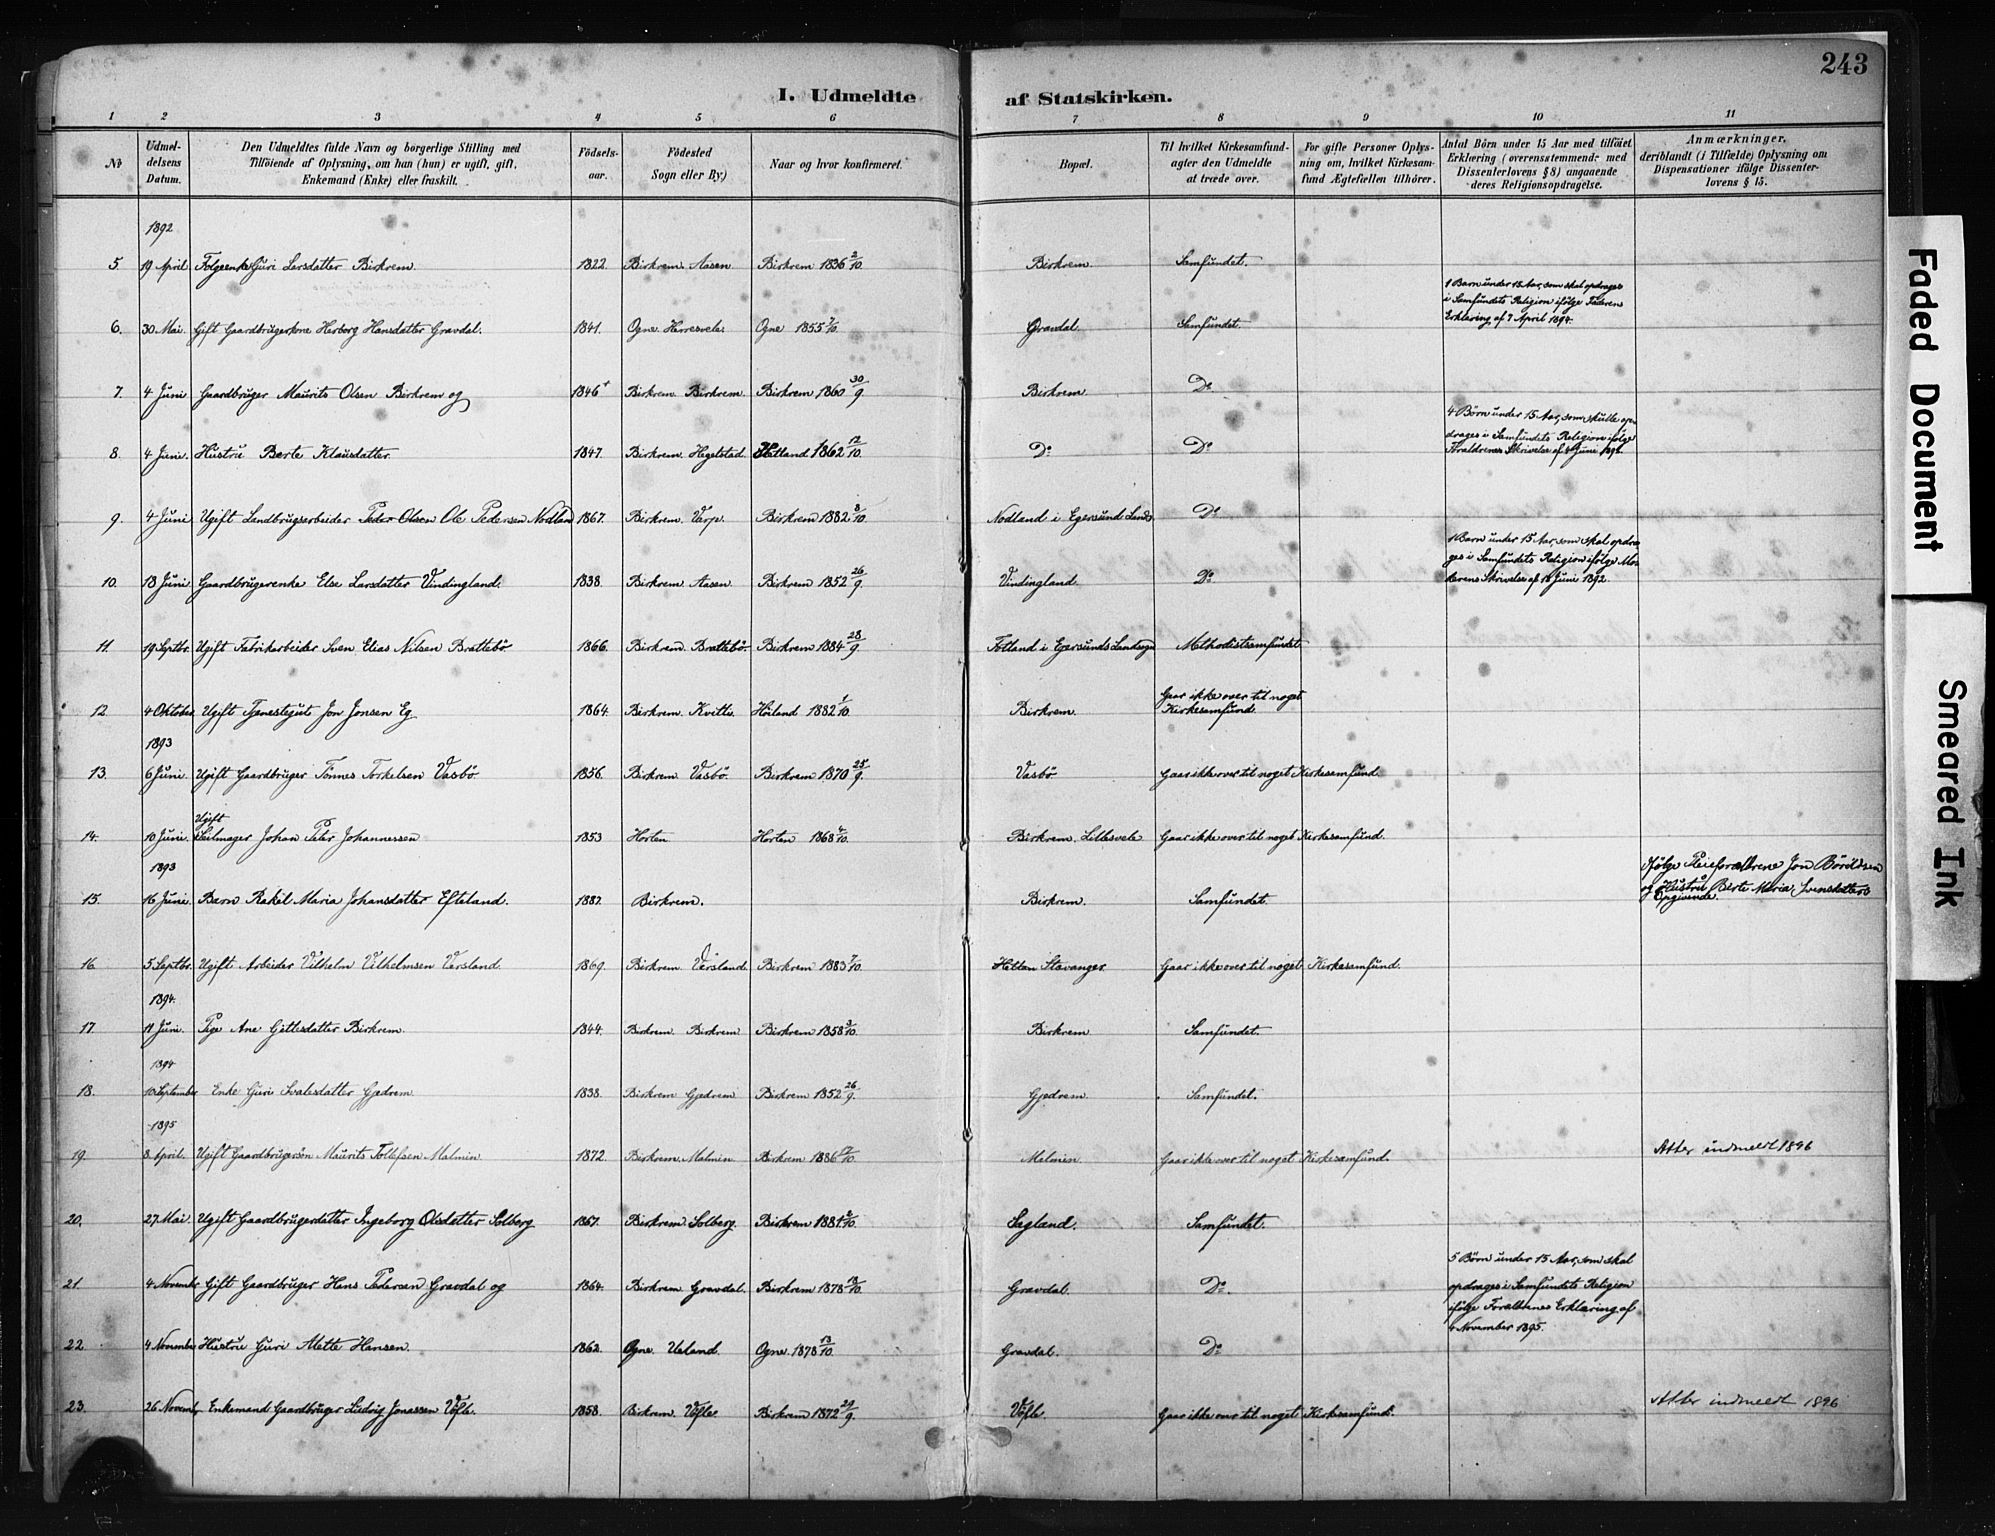 243
I. Udmeldte af Statskirken.
1 2 3 4 5 6 7 8 9 10 11
No
Udmel-
delsens
Datum.
Den Udmeldtes fulde Navn og borgerlige Stilling med
Tilføiende af Oplysning, om han (hun) er ugift, gift,
Enkemand (Enke) eller fraskilt.
Fødsels-
aar.
Fødested
Sogn eller By)
Naar og hvor konfirmeret.
Bopæl.
Til hvilket Kirkesamfund-
agter den Udmeldte
at træde over.
For gifte Personer Oplys-
ning om, hvilket Kirkesam-
fund Ægtefællen tilhører.
Antal Börn under 15 Aar med tilföiet
Erklæring (overensstemmende med
Dissenterlovens § 8) angaaende
deres Religionsopdragelse.
Anmærkninger,
deriblandt (i Tilfælde) Oplysning om
Dispensationer ifölge Dissenter-
lovens § 15.
1892
5. 19 April Følgeenke Guri Larsdatter Birkrem 1822 Birkrem Aasen Birkrem 1836 2/10 Birkrem Samfundet.
1 Barn under 15 Aar, som skal opdrages
i Samfundets Religion ifølge Faderens
Erklæring af 7 April 1894.
6. 30 Mai. Gift Gaardbrugerkone Herborg Hansdatter Gravdal. 1841. Ogne Herresvele Ogne 1855 7/10 Gravdal. Samfundet.
7. 4 Juni Gaardbruger Maurits Olsen Birkrem og 1846 Birkrem Birkrem Birkrem 1860 30/9 Birkrem Do
4 Børn under 15 Aar, som skulle op-
drages i Samfundets Religion ifølge
Forældrenes Skrivelse af 4 Juni 1892.
8. 4 Juni. Hustru Berte Klausdatter 1847. Birkrem Hegelstad Hetland 1862 12/10. Do Do
9. 4 Juni Ugift Landbrugsarbeider Peder Olsen Ole Pedersen Nodland 1867. Birkrem Varp. Birkrem 1882 8/10. Nodland i Egersund Lands. Do
1 Barn under 15 Aar, som skal opdra-
ges i Samfundets Religion ifølge Mo-
derens Skrivelse af 18 Juni 1892.
10. 18 Juni Gaardbrugerenke Else Larsdatter Vindingland. 1838. Birkrem Aasen Birkrem 1852 26/9. Vindingland. Do
11. 19 Septbr. Ugift Fabrikarbeider Sven Elias Nilsen Brattebø 1866. Birkrem Brattebø. Birkrem 1884 28/9 Fotland i Egersunds Landsogn Methodistsamfundet
12. 4 Oktober Ugift Tjenestegut Jon Jonsen Eg 1864. Birkrem Kvitle. Høiland 1882 1/10. Birkrem.
Gaar ikke over til noget
Kirkesamfund.
1893
13. 6 Juni. Ugift Gaardbruger Tønnes Torkelsen Vasbø 1856. Birkrem Vasbø. Birkrem 1870 25/9. Vasbø Gaar ikke over til noget Kirkesamfund.
Ugift
14. 10 Juni. Seilmager Johan Peter Johannessen 1853 Horten Horten 1868 4/10. Birkrem. Lillesvele Gaar ikke over til noget Kirkesamfund.
1893
Ifølge Pleieforældrene Jon Børildsen
og Hustru Berte Maria Svensdatters
Opgivende.
15. 16 Juni. Barn Rakel Maria Johansdatter Efteland. 1882 Birkrem. Birkrem. Samfundet.
16. 5 Septbr. Ugift Arbeider Vilhelm Vilhelmsen Versland 1869. Birkrem Versland Birkrem 1883 7/10. Stavanger Gaar ikke over til noget Kirkesamfund.
1894.
17. 11 Juni. Pige Ane Gittesdatter Birkrem 1844. Birkrem Birkrem Birkrem 1858 3/10. Birkrem Samfundet.
1894
18. 10 September Enke Guri Svalesdatter Gjedrem 1838. Birkrem Gjedrem Birkrem 1852 26/9. Gjedrem Samfundet.
1895
19. 8 April. Ugift Gaardbrugersøn Maurits Tollefsen Malmin 1872. Birkrem Malmin Birkrem 1886 /10. Malmin Gaar ikke over til noget Kirkesamfund. Atter indmeldt 1896
20. 27 Mai. Ugift Gaardbrugerdatter Ingeborg Olsdatter Solberg 1867. Birkrem Solberg. Birkrem 1881 2/10. Sagland. Samfundet.
5 Børn under 15 Aar, som skal
opdrages i Samfundets Religion
ifølge Forældrenes Erklæring af
4 November 1895.
21. 4 Novembr Gift Gaardbruger Hans Pedersen Gravdal og 1864. Birkrem Gravdal. Birkrem 1878 13/10. Gravdal. Do.
22. 4 November Hustru Guri Mette Hansen 1862. Ogne Ueland Ogne 1878 13/10. Gravdal. Do
23. 26 Novembr Enkemand Gaardbruger Ludvig Jonassen Vøfle. 1858. Birkrem Vøfle Birkrem 1872 29/9. Vøfle. Gaar ikke over til noget Kirkesamfund. Atter indmeldt 1896
Faded Document
Smeared Ink